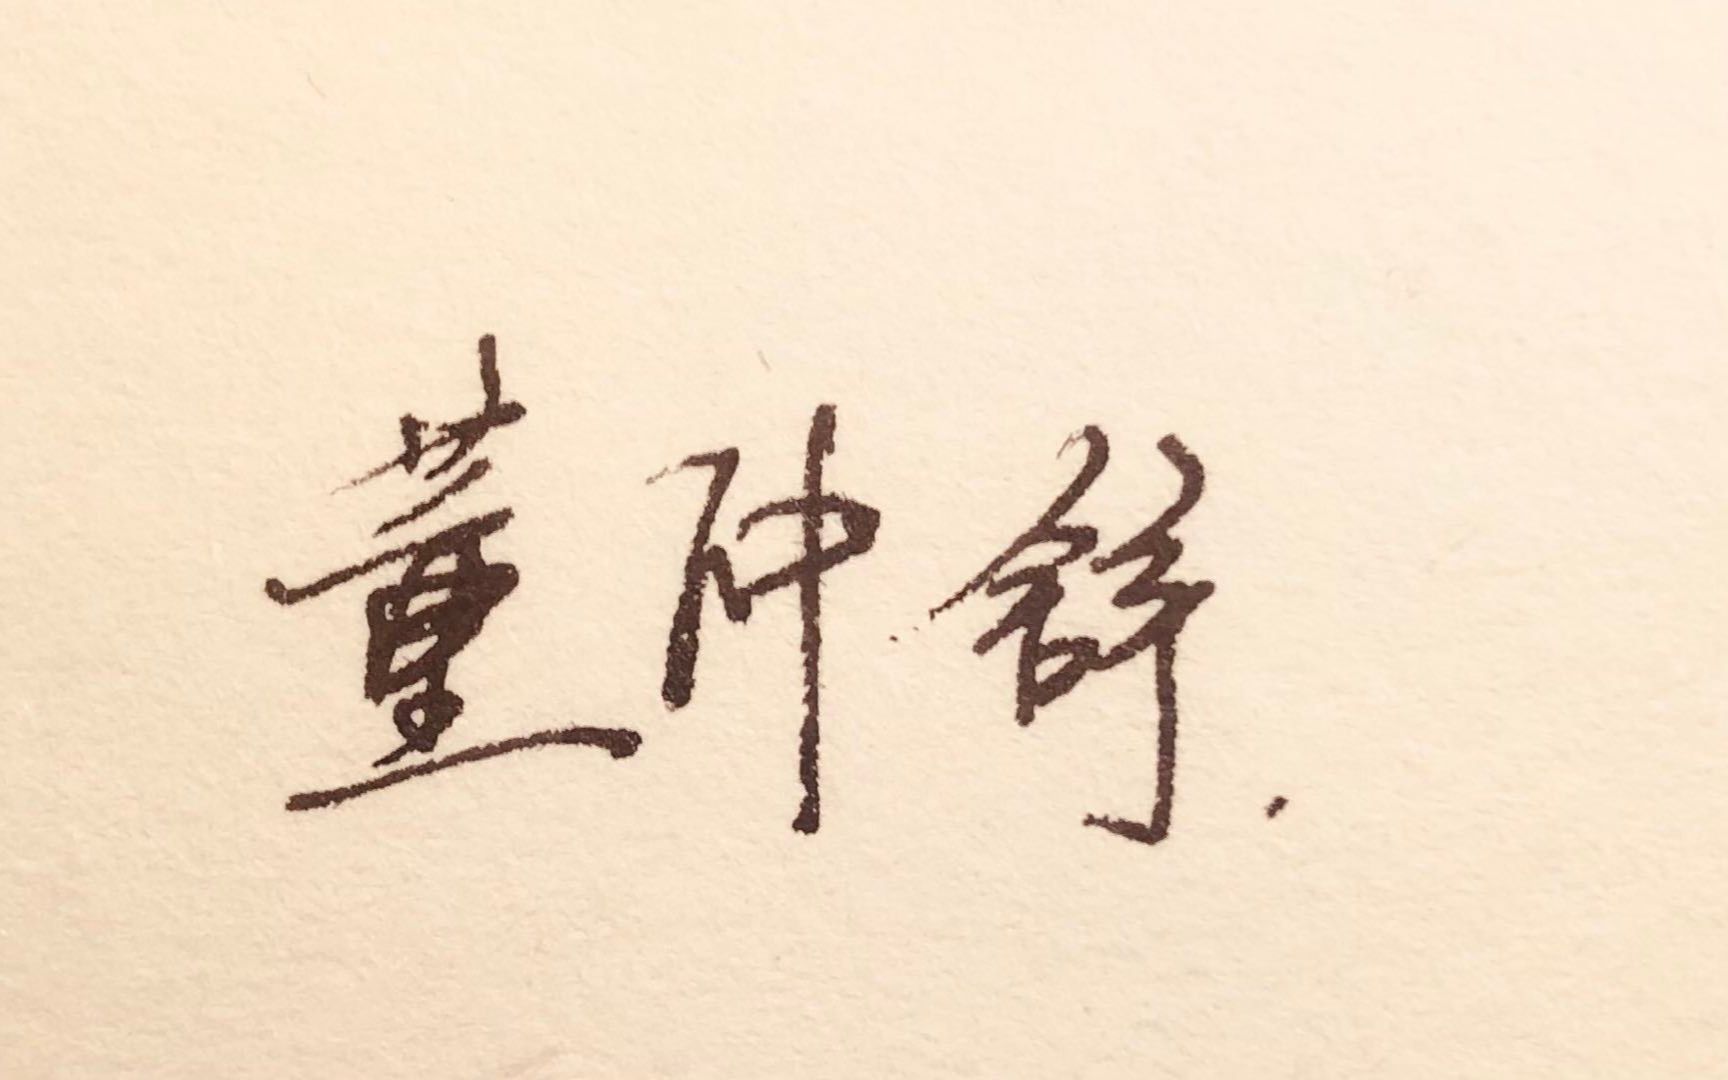 董仲舒.